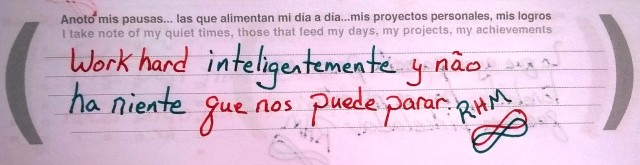 Anoto mis pausas... las que alimentan mi día a día...mis proyectos personales, mis logros
I take note of my quiet times, those that feed my days, my projects, my achievements
Work hard inteligentemente y não
ha niente que nos puede parar. RHM